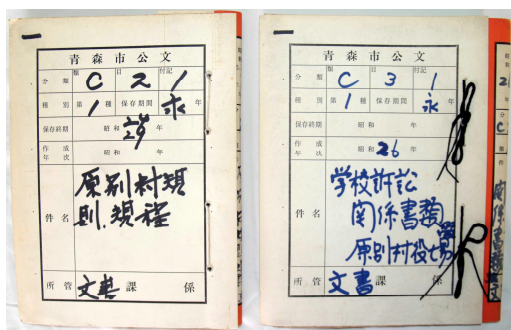 青森市公文
類 目 付記
分類 C 2 1
種別 第1種 保存期間 永年
保存終期 昭和 年
作成年次 昭和 年
件名 原別村規則、規程
所管 文書課 係
青森市公文
類 目 付記
分類 C 3 1
種別 第1種 保存期間 永年
保存終期 昭和 年
作成年次 昭和26年
件名 学校訴訟
関係書類
原別村役場
所管 文書課 係